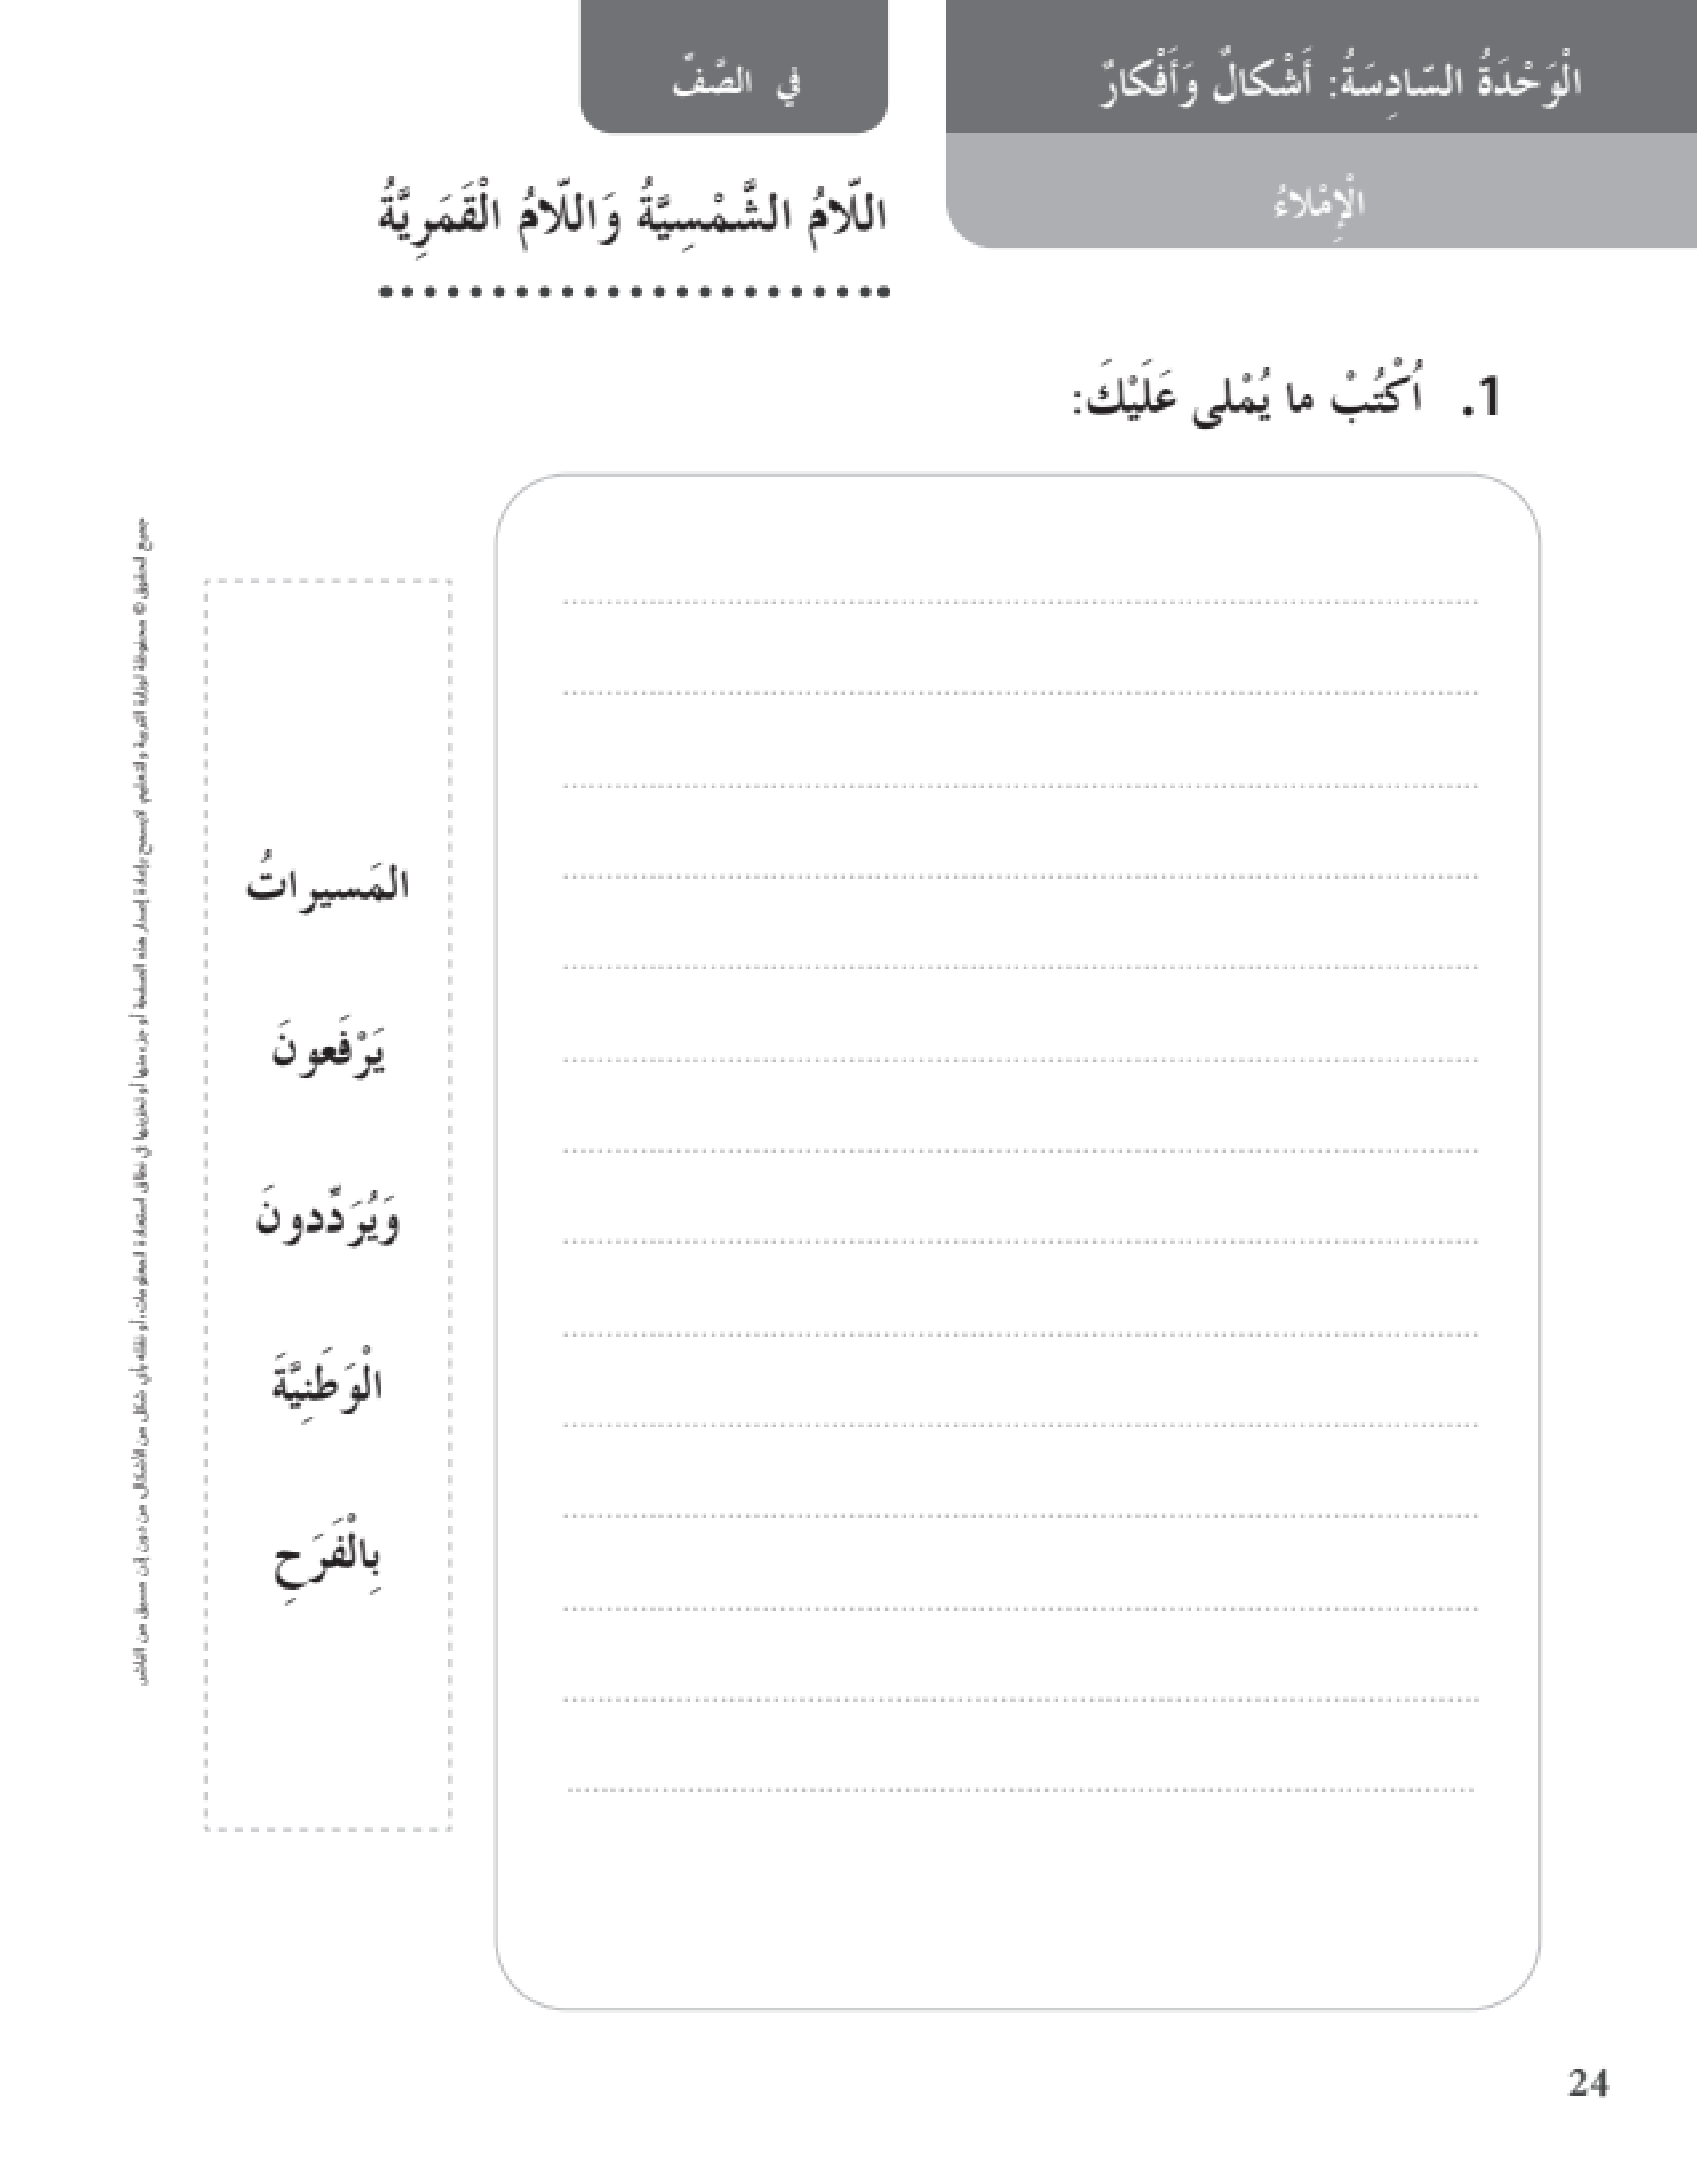 الْوَحْدَةُ السّادِسَةُ: أَشْكالٌ وَأَفْكارٌ
في الصَّفّ
الْإِمْلاءُ
اللّامُ الشَّمْسِيَّةُ وَاللّامُ الْقَمَرِيَّةُ
1. اُكْتُبْ ما يُمْلى عَلَيْكَ:
المَسيراتُ
يَرْفَعونَ
وَيُرَدِّدونَ
الْوَطَنِيَّةَ
بِالْفَرَحِ
جميع الحقوق © محفوظة لوزارة التربية والتعليم. لا يسمح بإعادة إصدار هذه الصفحة أو جزء منها أو تخزينها في نطاق استعادة المعلومات، أو نقله بأي شكل من الأشكال من دون إذن مسبق من الناشر
24